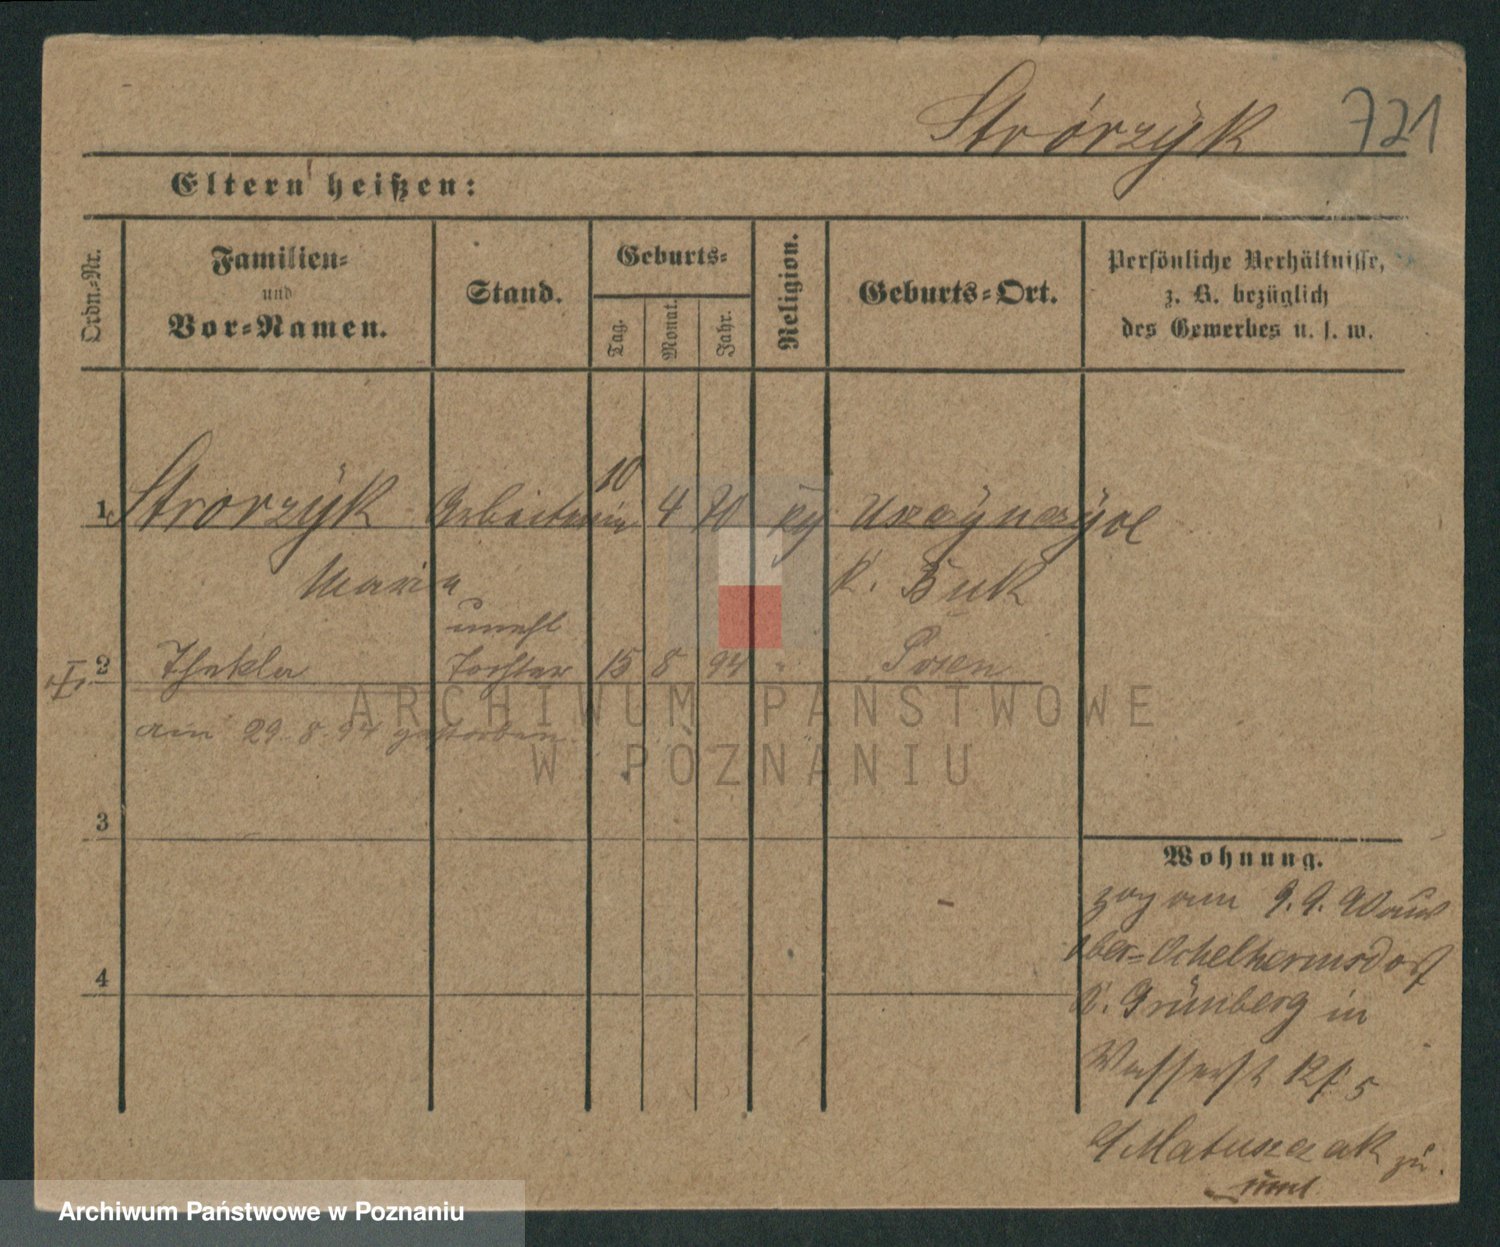 Strórzÿk 721
Eltern heißen:
Ordn.-Nr.
Familien-
und
Vor-Namen.
Stand.
Geburts-
Tag.
Monat.
Jahr.
Religion.
Geburts-Ort.
Persönliche Verhältnisse,
z. B. bezüglich
des Gewerbes u. s. w.
1 Strorzÿk Arbeiterin 10 4 70
Maria K. Buk
unehl
2 Thekla Tochter 15 8 94 " Posen
am 29. 8. 94 gestorben
3
4
Wohnung.
zog am 9. 9. 90 aus
Ober-Ochelhermsdorf
K. Grünberg in
Wasserst 12
Matuszak zu.
ARCHIWUM PAŃSTWOWE
W POZNANIU
Archiwum Państwowe w Poznaniu